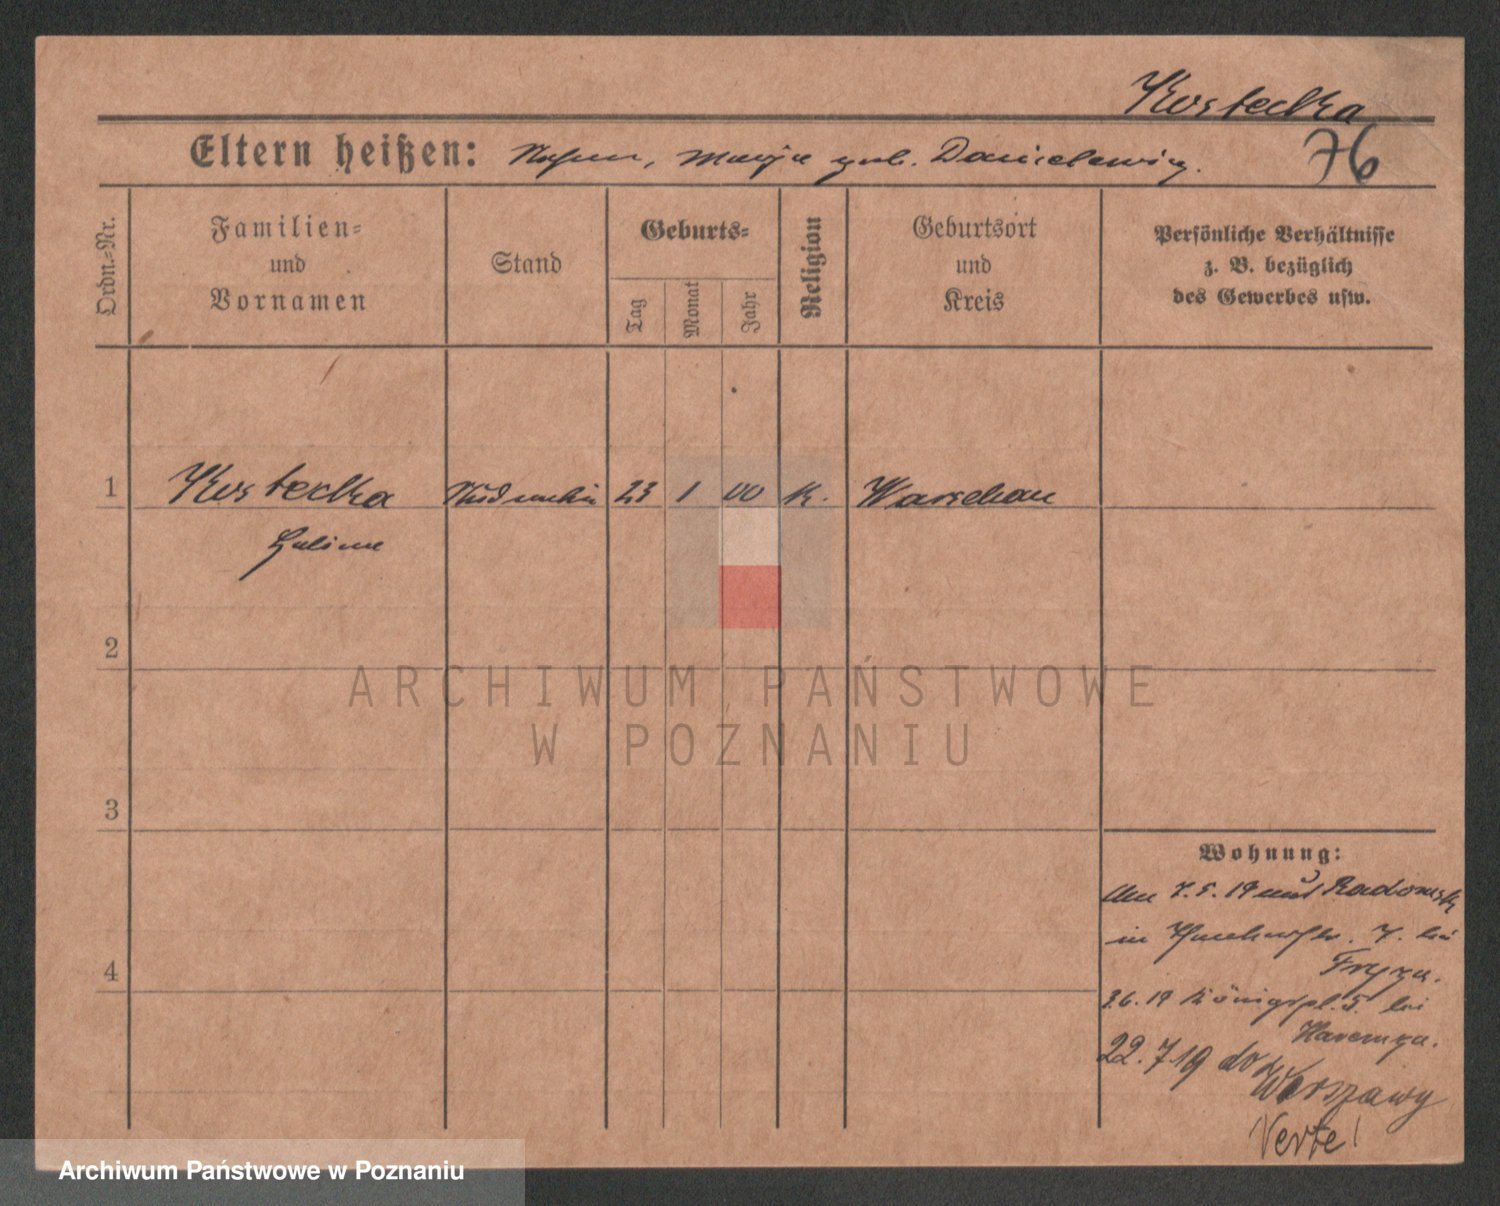 Kostecka
76
Eltern heißen: Stefan, Marja geb. Danielewicz.
Ordn.-Nr.
Familien-
und
Vornamen
Stand
Geburts-
Tag
Monat
Jahr
Religion
Geburtsort
und
Kreis
Persönliche Verhältnisse
z. B. bezüglich
des Gewerbes usw.
1 Kostecka Studentin 23 1 00 K. Warschau
Halina
2
3
4
Wohnung:
Am 7.5.19 aus Radomsk
in 7. bei
Fryza.
3.6.19 Königspl. 5. bei
22.7 19 do
Warszawy
Verte!
ARCHIWUM PAŃSTWOWE
W POZNANIU
Archiwum Państwowe w Poznaniu